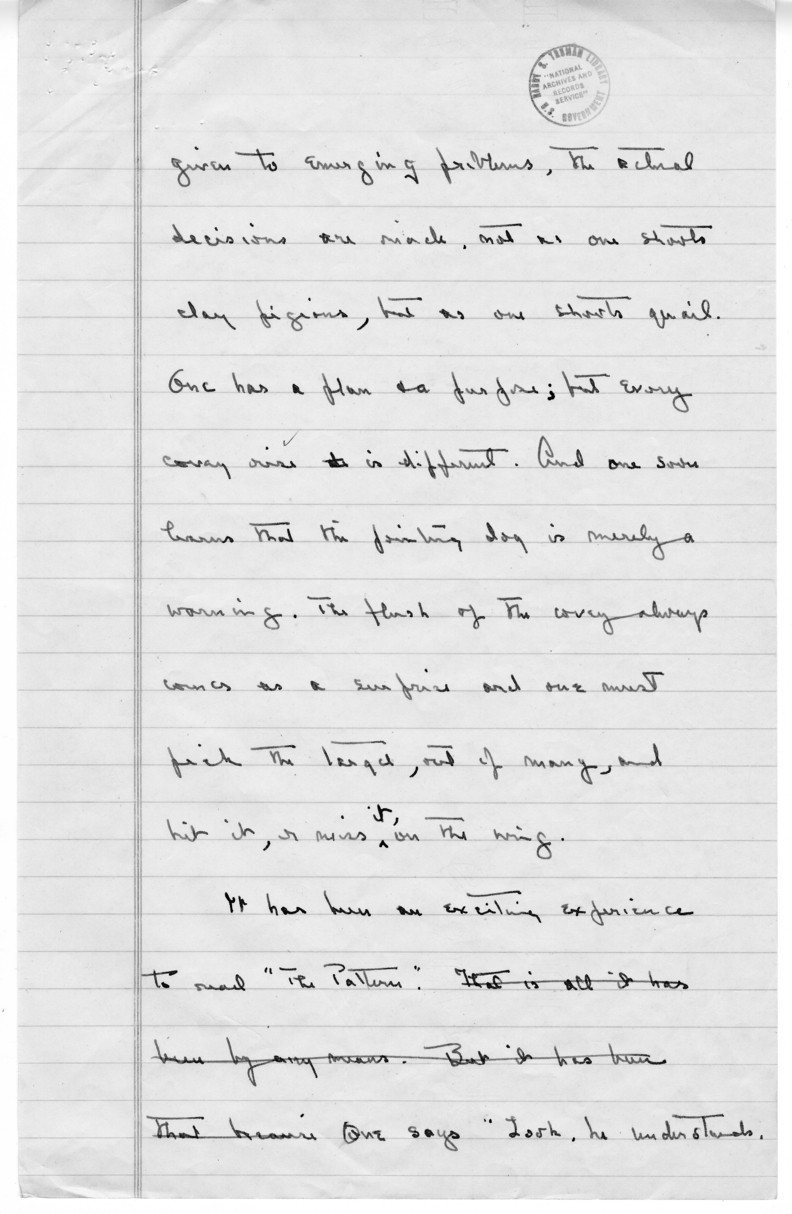 HARRY S. TRUMAN LIBRARY
"NATIONAL
ARCHIVES AND
RECORDS
SERVICE"
U.S. GOVERNMENT
given to emerging problems, the actual
decisions are made, not as one shoots
clay pigions, but as one shoots quail.
One has a plan & a purpose; but every
covey rise is different. And one soon
learns that the pointing dog is merely a
warning. The flush of the covey always
comes as a surprise and one must
pick the target, out of many, and
hit it, or miss it, on the wing.
It has been an exciting experience
to read "The Pattern". That is all it has
been by any means. But it has been
that because One says "Look, he understands.